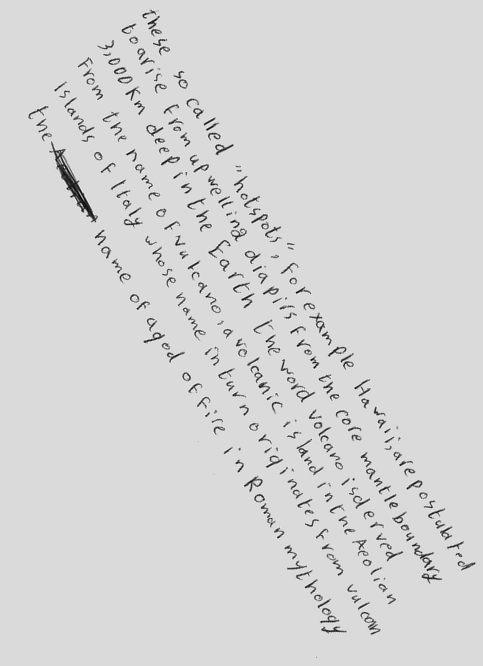 these so called "hotspots", for example Hawaii, are postulated
to arise from upwelling diapirs from the core mantle boundary
3,000 km deep in the Earth the word volcano is derved
From the name of Vulcano, a volcanic island in the Aeolian
islands of Italy whose name in turn originates from vulcan
the name of a god of fire in Roman mythology